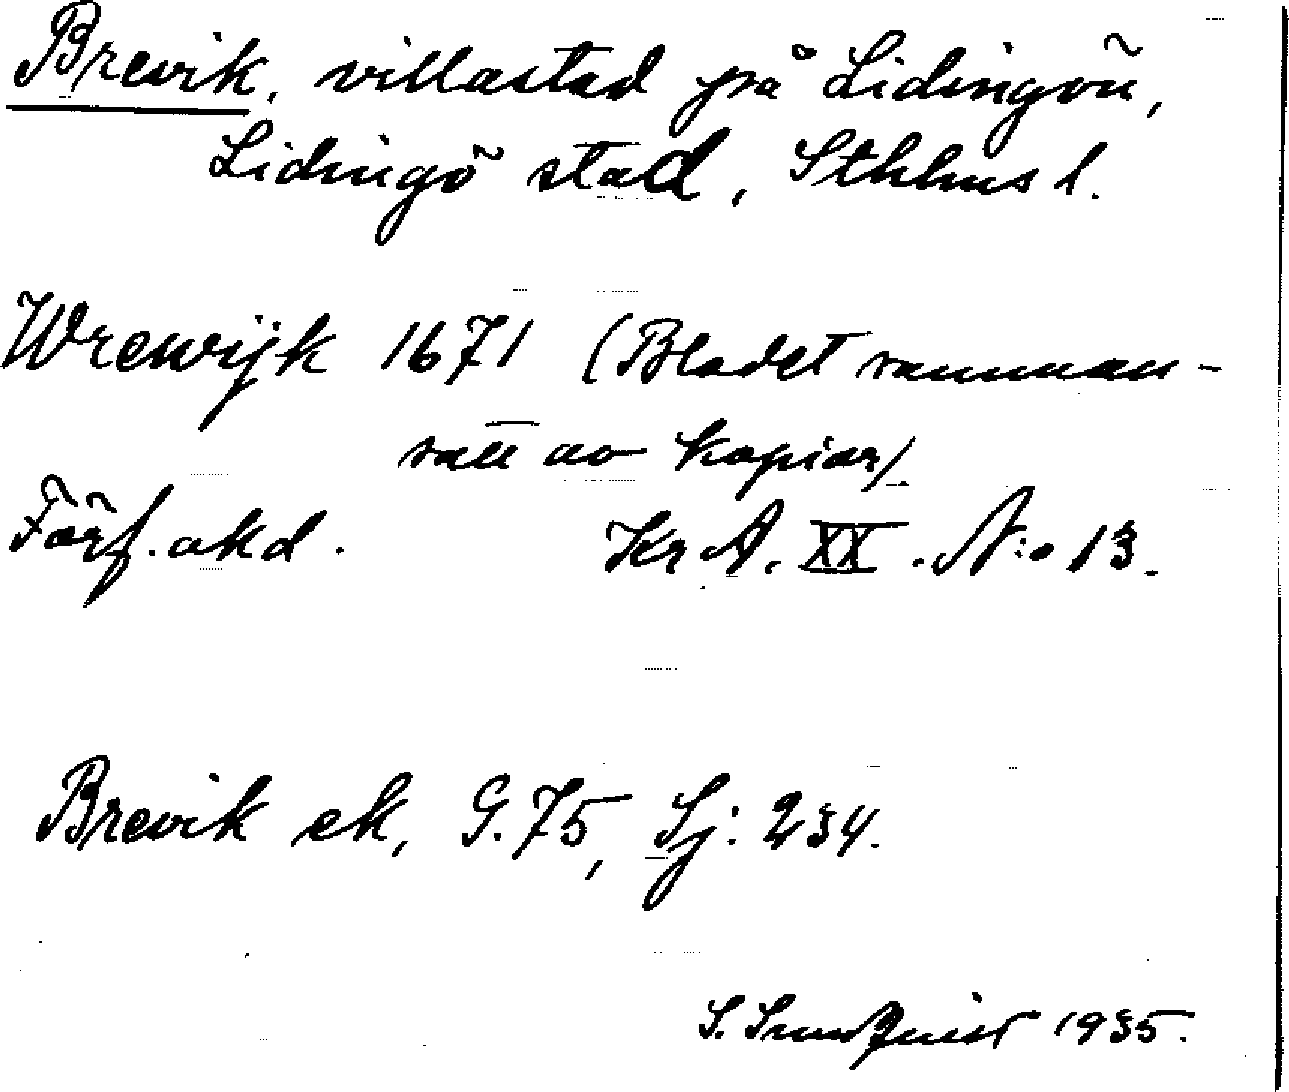 Brevik, villastad på Lidingön,
Lidingö stad, Sthlms l.
Wrewijk 1671 (Bladet samman-
satt av kopior)
Förf. okd. KrA. XX. N:o 13.
Brevik ek, G. 75, Sj: 234.
S. Sundquist 1935.